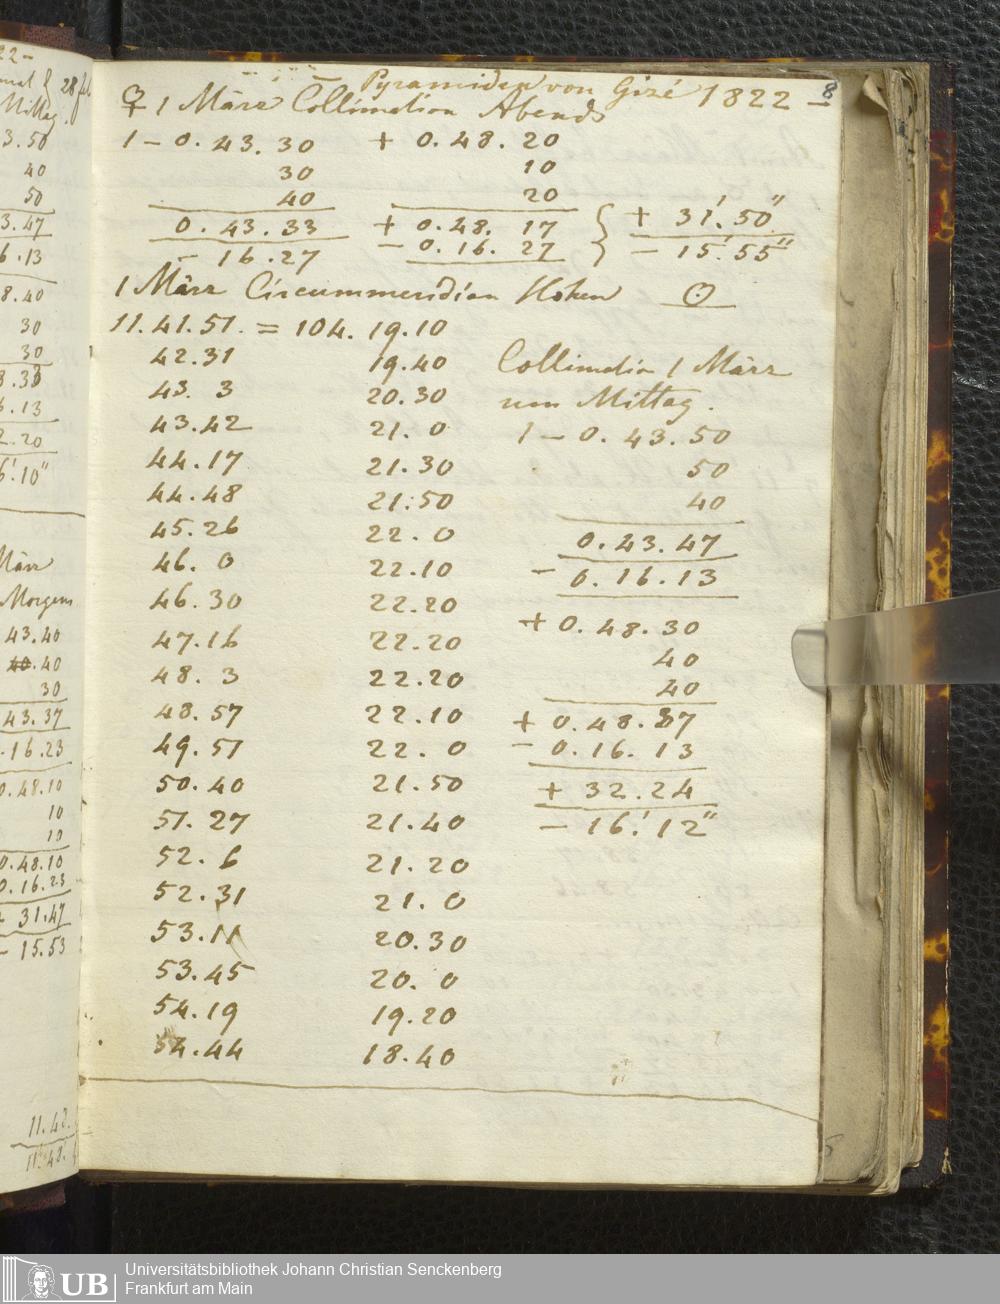 Pyramiden von Gizé 1822 – 8
♀ 1 März Collimation Abends
1 – 0. 43. 30 + 0. 48. 20
30 10
40 20
0. 43. 33 + 0. 48. 17 { + 31.' 50"
– 16. 27 – 0. 16. 27 – 15.' 55"
1 März Circummeridian Höhen ☉
11. 41. 51. = 104. 19. 10
42. 31 19. 40
43. 3 20. 30
43. 42 21. 0
44. 17 21. 30
44. 48 21. 50
45. 26 22. 0
46. 0 22. 10
46. 30 22. 20
47. 16 22. 20
48. 3 22. 20
48. 57 22. 10
49. 51 22. 0
50. 40 21. 50
51. 27 21. 40
52. 6 21. 20
52. 31 21. 0
53. 11 20. 30
53. 45 20. 0
54. 19 19. 20
54. 44 18. 40
Collimation 1 März
um Mittag.
1 – 0. 43. 50
50
40
0. 43. 47
– 0. 16. 13
+ 0. 48. 30
40
40
+ 0. 48. 37
– 0. 16. 13
+ 32. 24
– 16.' 12"
22 –
28 feb
Mittag
3. 50
40
50
3. 47
6. 13
8. 40
30
30
8. 33
6. 13
2. 20
6.' 10"
März
Morgens
43. 40
40. 40
30
43. 37
. 16. 23
0. 48. 10
10
10
0. 48. 10
0. 16. 23
+ 31. 47
– 15. 53
11. 42.
11. 42.
UB
Universitätsbibliothek Johann Christian Senckenberg
Frankfurt am Main